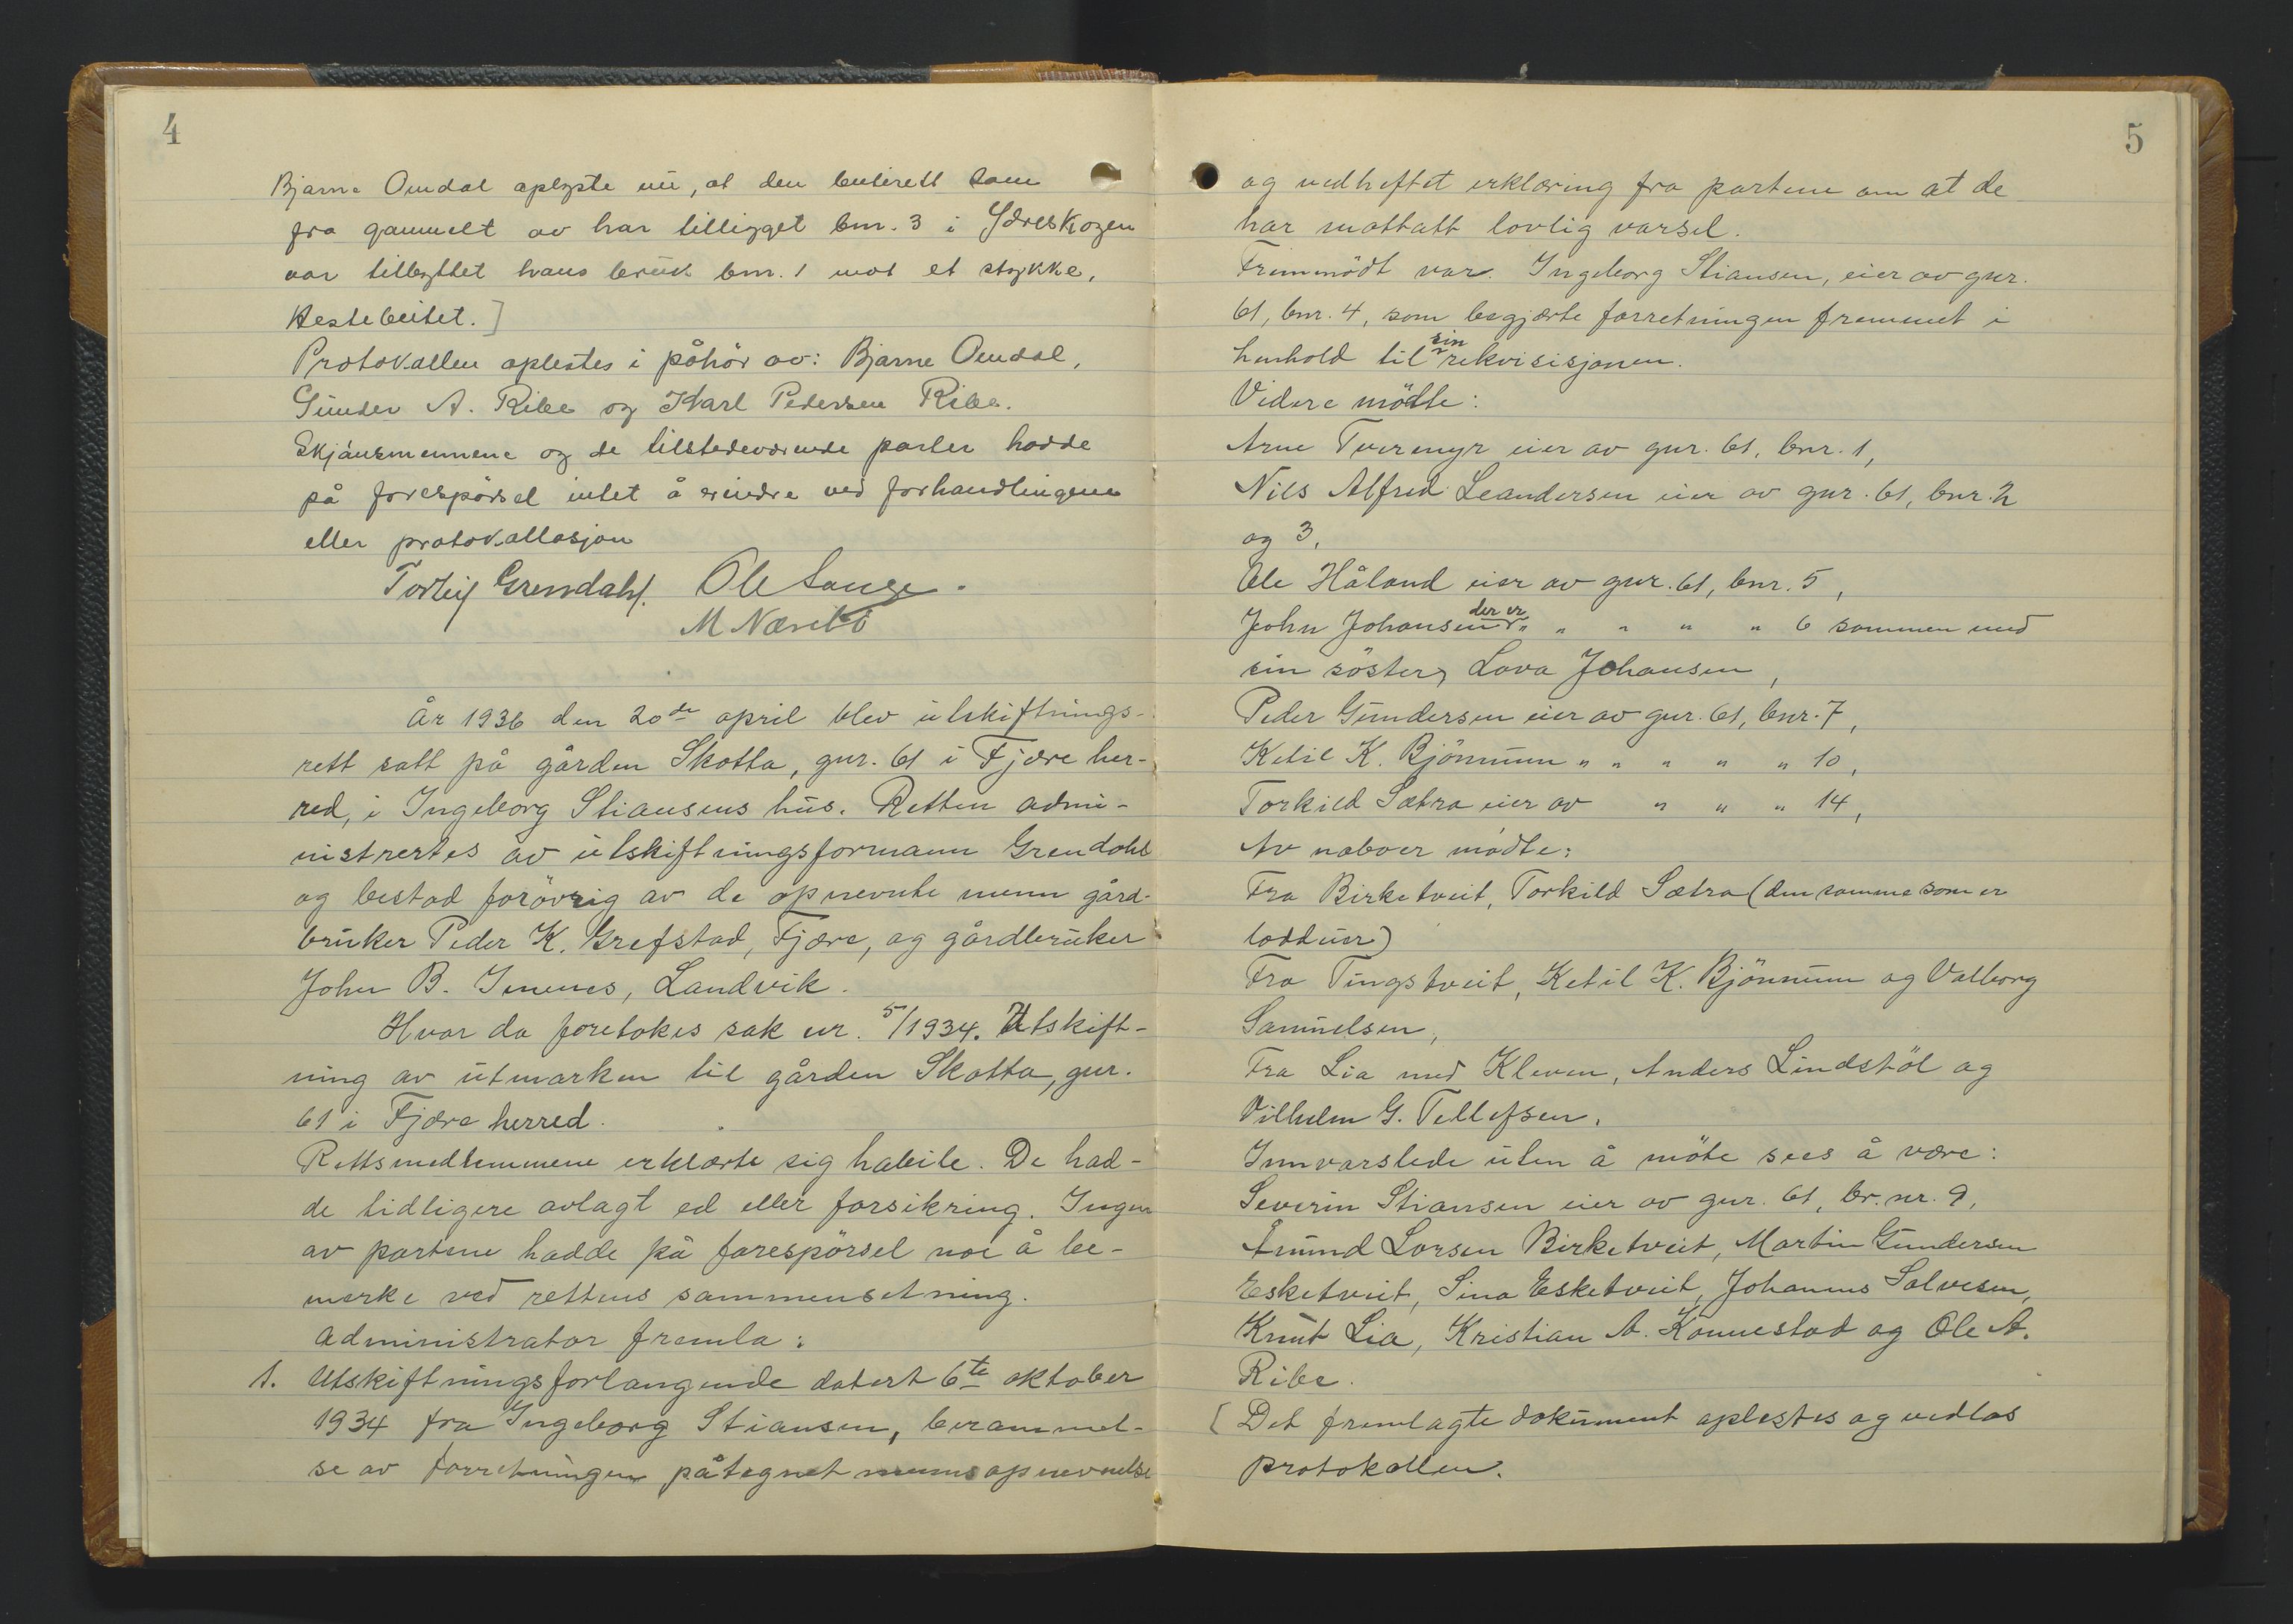 4
Bjarne Omdal oplyste nu, at den beiterett som
fra gammelt av har tilligget bnr. 3 i Ydreskogen
var tilbyttet hans bruk bnr. 1 mot et stykke,
Hestebeitet.]
Protokollen oplestes i påhør av: Bjarne Omdal,
Gunder A. Ribe og Karl Pedersen Ribe.
Skjönsmennene og de tilstedeværende parter hadde
på forespörsel intet å erindre ved forhandlingene
eller protokollasjon
Torleif Grendahl. Ole Lauge.
M Næsebö
År 1936 den 20de april blev utskiftnings-
rett satt på gården Skotta, gnr. 61 i Fjære her-
red, i Ingeborg Stiansens hus. Retten admi-
nistrertes av utskiftningsformann Grendahl
og bestod forövrig av de opnevnte menn gård-
bruker Peder K. Grefstad, Fjære, og gårdbruker
John B. Imenes, Landvik.
Hvor da foretokes sak nr. 5/1934. Utskift-
ning av utmarken til gården Skotta, gnr.
61 i Fjære herred.
Rettsmedlemmene erklærte sig habile. De had-
de tidligere avlagt ed eller forsikring. Ingen
av partene hadde på forespörsel noe å be-
merke ved rettens sammensetning.
Administrator fremla:
1. Utskiftningsforlangende datert 6te oktober
1934 fra Ingeborg Stiansen, berammel-
se av forretningen påtegnet mennsopnevnelse
5
og vedheftet erklæring fra partene om at de
har mottatt lovlig varsel.
Fremmödt var. Ingeborg Stiansen, eier av gnr.
61, bnr. 4, som begjærte forretningen fremmet i
henhold til sin rekvisisjonen.
Videre mödte:
Arne Tveremyr eier av gnr. 61, bnr. 1,
Nils Alfred Leandersen eier av gnr. 61, bnr. 2
og 3,
Ole Håland eier av gnr. 61, bnr. 5,
John Johansen der er " " " " " 6 sammen med
sin söster, Lova Johansen,
Peder Gundersen eier av gnr. 61, bnr. 7,
Ketil K. Bjönnum " " " " " 10,
Torkild Sætra eier av " " " 14,
Av naboer mödte:
Fra Birketveit, Torkild Sætra (den samme som er
loddeier)
Fra Tingstveit, Ketil K. Bjönnum og Valborg
Samuelsen,
Fra Lia med Kleven, Anders Lindstöl og
Vilhelm G. Tellefsen.
Innvarslede uten å möte sees å være:
Severin Stiansen eier av gnr. 61, br. nr. 9,
Åmund Larsen Birketveit, Martin Gundersen
Esketveit, Sina Esketveit, Johannes Salvesen,
Knut Lia, Kristian A. Konnestad og Ole A.
Ribe.
[ Det fremlagte dokument oplestes og vedlas
protokollen.